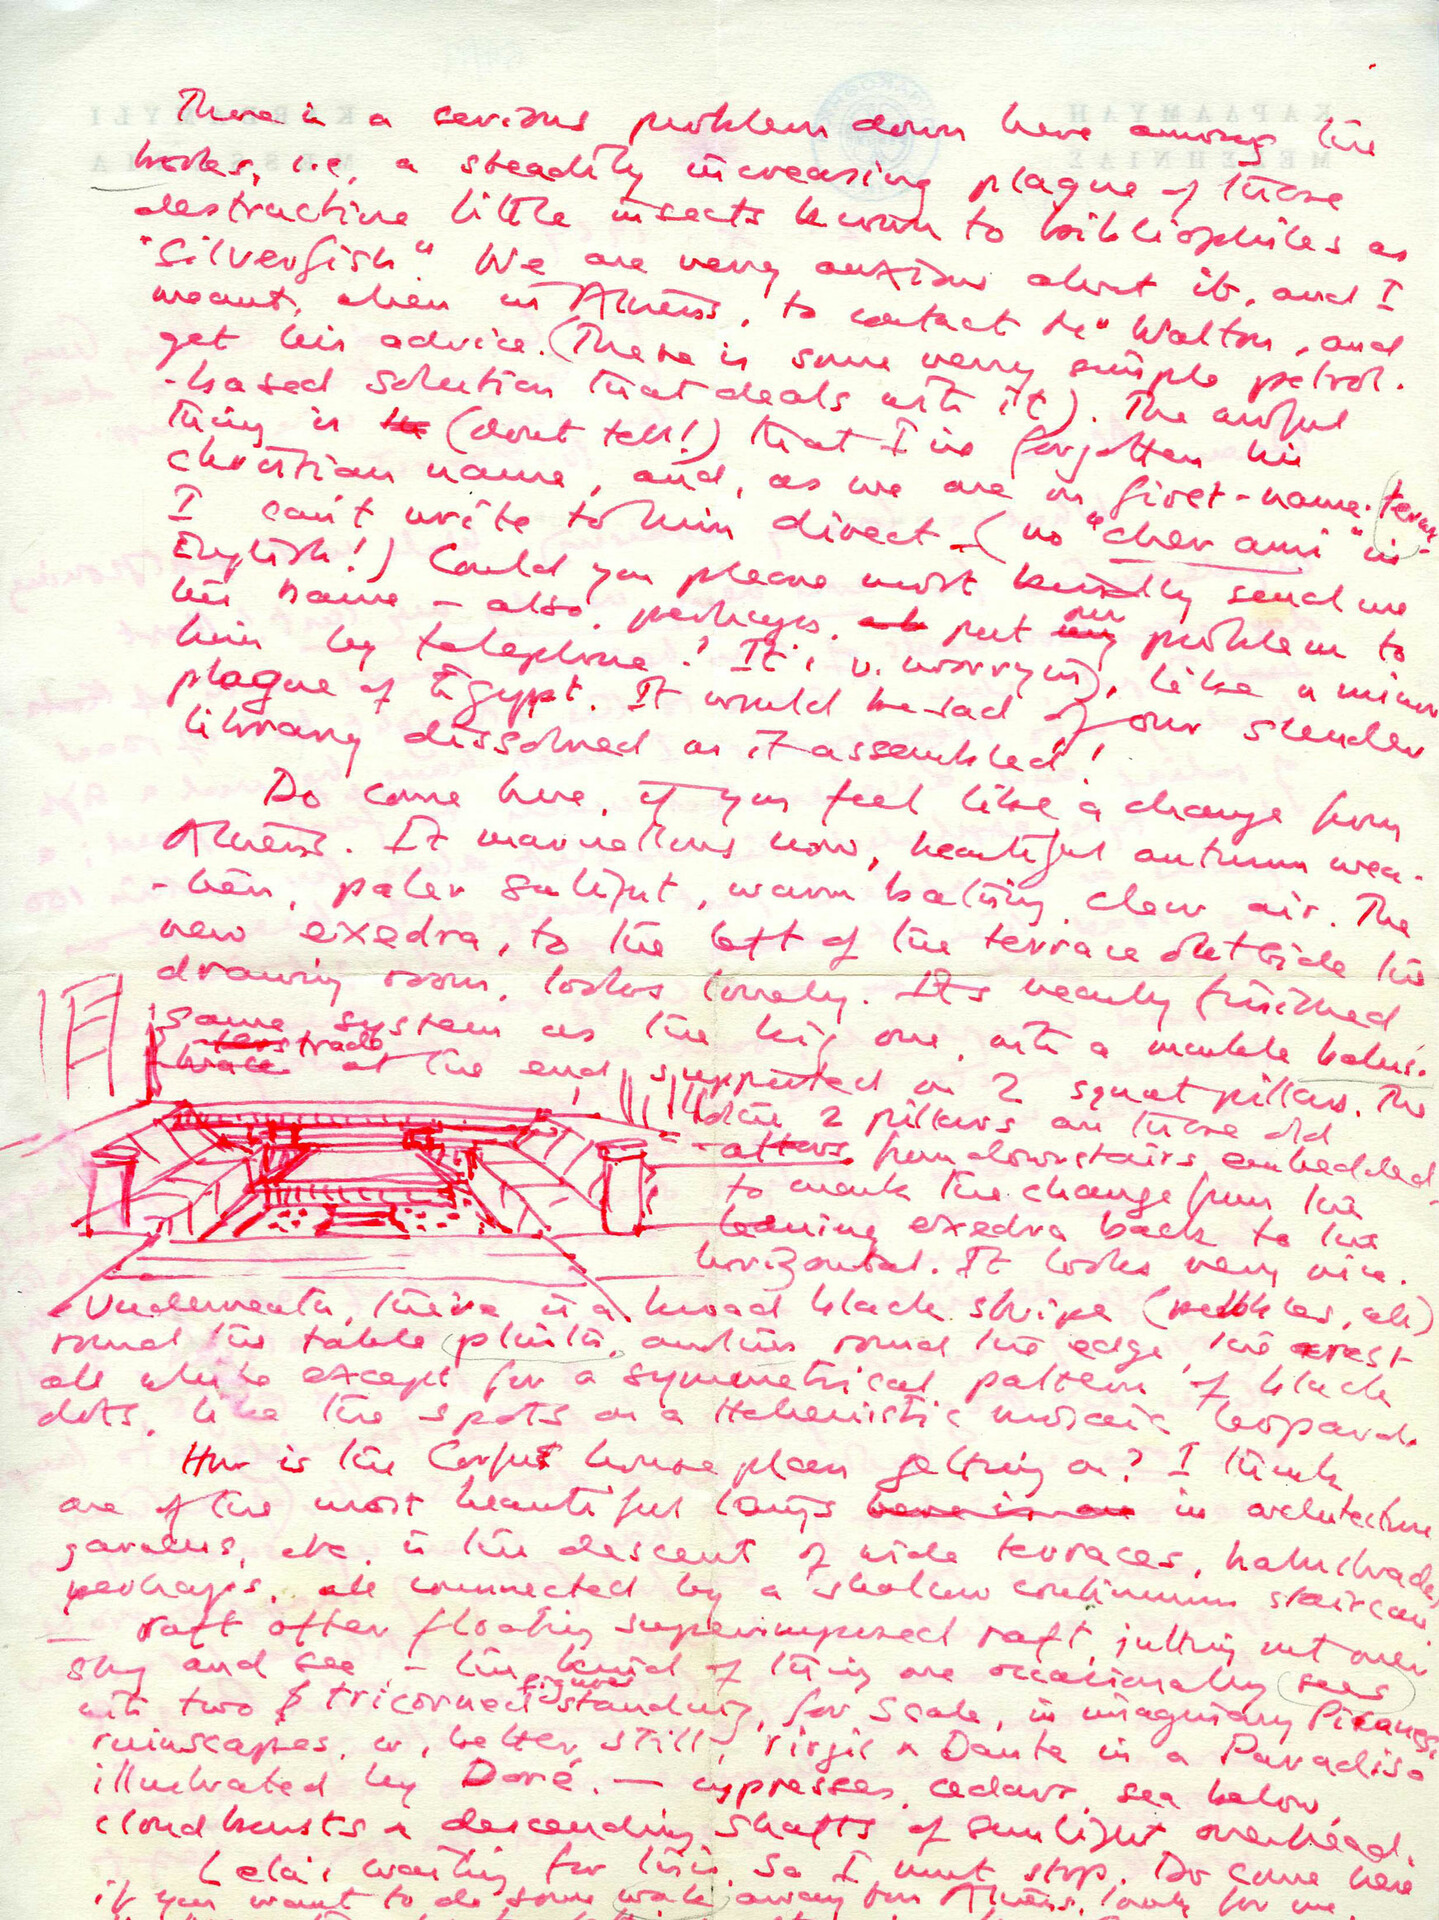 There is a serious problem down here among the
books, i.e, a steadily increasing plague of those
destructive little insects known to bibliophiles as
"Silverfish". We are very anxious about it, and I
meant, when in Athens, to contact Mr Walton, and
get his advice. (There is some very simple petrol-
-based solution that deals with it). The awful
thing is (don't tell!) that I've forgotten his
christian name, and, as we are on first-name-terms
I can't write to him direct - (no "cher ami" in
English!) Could you please most kindly send me
his name - also, perhaps, put our problem to
him by telephone? It's v. worrying, like a minor
plague of Egypt. It would be sad if our slender
library dissolved as it assembled!
Do come here, if you feel like a change from
Athens. It marvellous now, beautiful autumn wea-
-ther, paler sunlight, warm bathing, clear air. The
new exedra, to the left of the terrace outside the
drawing room, looks lovely. It's nearly finished
same system as the big one, with a marble balus-
trade at the end supported on 2 squat pillars. The
2 pillars are those old
altars from downstairs embedded,
to mark the change from the
leaning exedra back to the
horizontal. It looks very nice.
Underneath, there is a broad black stripe (pebbles, ah)
round the table plinth, another round the edge, the rest
all white except for a symmetrical pattern of black
dots, like the spots on a Hellenistic mosaic leopard.
How is the Corfu house plan getting on? I think
one of the most beautiful things in architecture
gardens, etc. is the descent of wide terraces, balustrades,
perhaps, all connected by a shallow continuous staircase
- raft after floating superimposed raft, jutting out over
sky and sea, - the kind of thing one occasionally sees
with two tricorned figures standing, for scale, in imaginary Piranesi
ruinscapes, or, better still, Virgil & Dante in a Paradiso
illustrated by Doré. — cypresses, cedars, sea below,
cloudbursts & descending shafts of sunlight overhead.
Lela's waiting for this, so I must stop. Do come here
if you want to do some work away from Athens, look for me